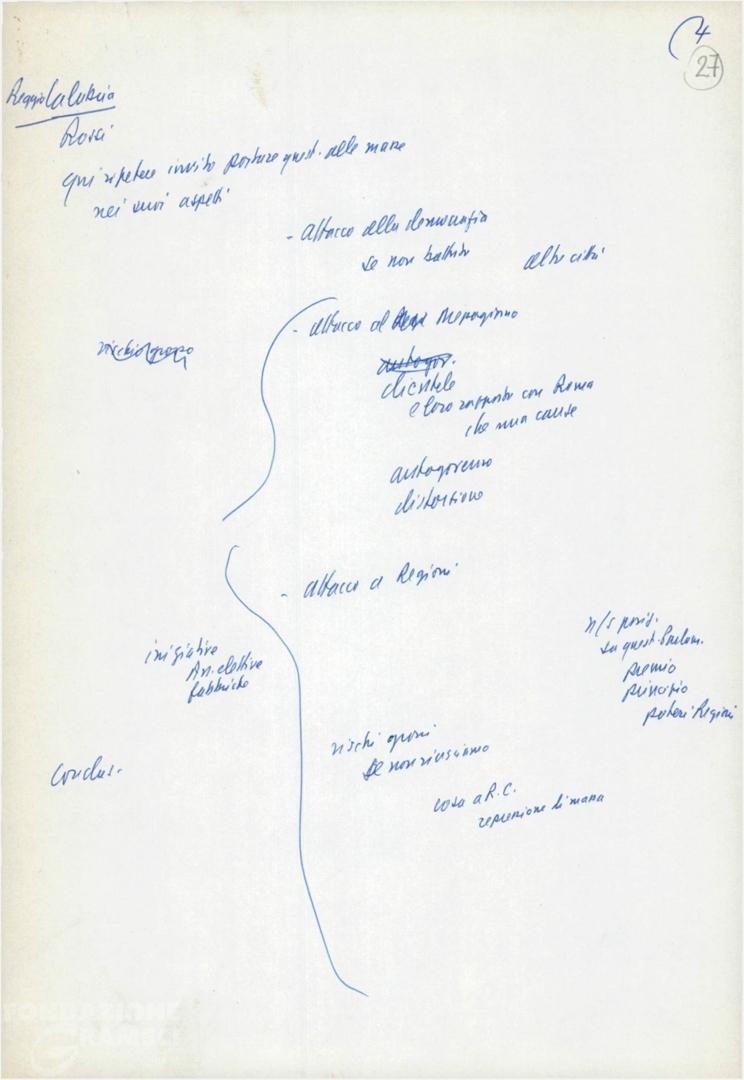 4
27
Reggio Calabria
Rossi
qui ripetere invito portare quest. alle masse
nei suoi aspetti
- attacco alla democrazia
se non battuto
altre città
- attacco al Mezzogiorno
rischio grosso
autogov.
clientele
e loro rapporto con Roma
che una cause
autogoverno
distorsione
- attacco a Regioni
n/s posiz.
su quest. Parlam.
premio
principio
poteri Regioni
iniziative
Ass. elettive
fabbriche
rischi grossi
se non riusciamo
Conclus.
cosa a R.C.
repressione di massa
FONDAZIONE
GRAMSCI